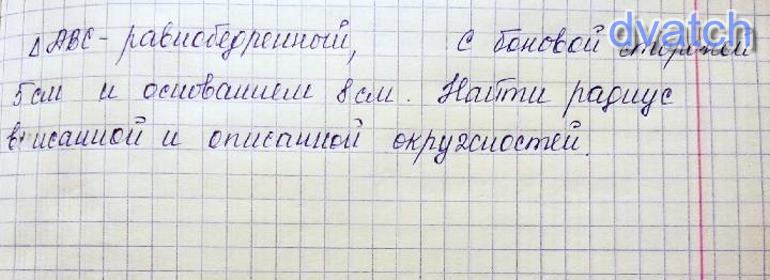 dvatch
△ ABC - равнобедренный, с боковой стороной
5 см и основанием 8 см. Найти радиус
вписанной и описанной окружностей.